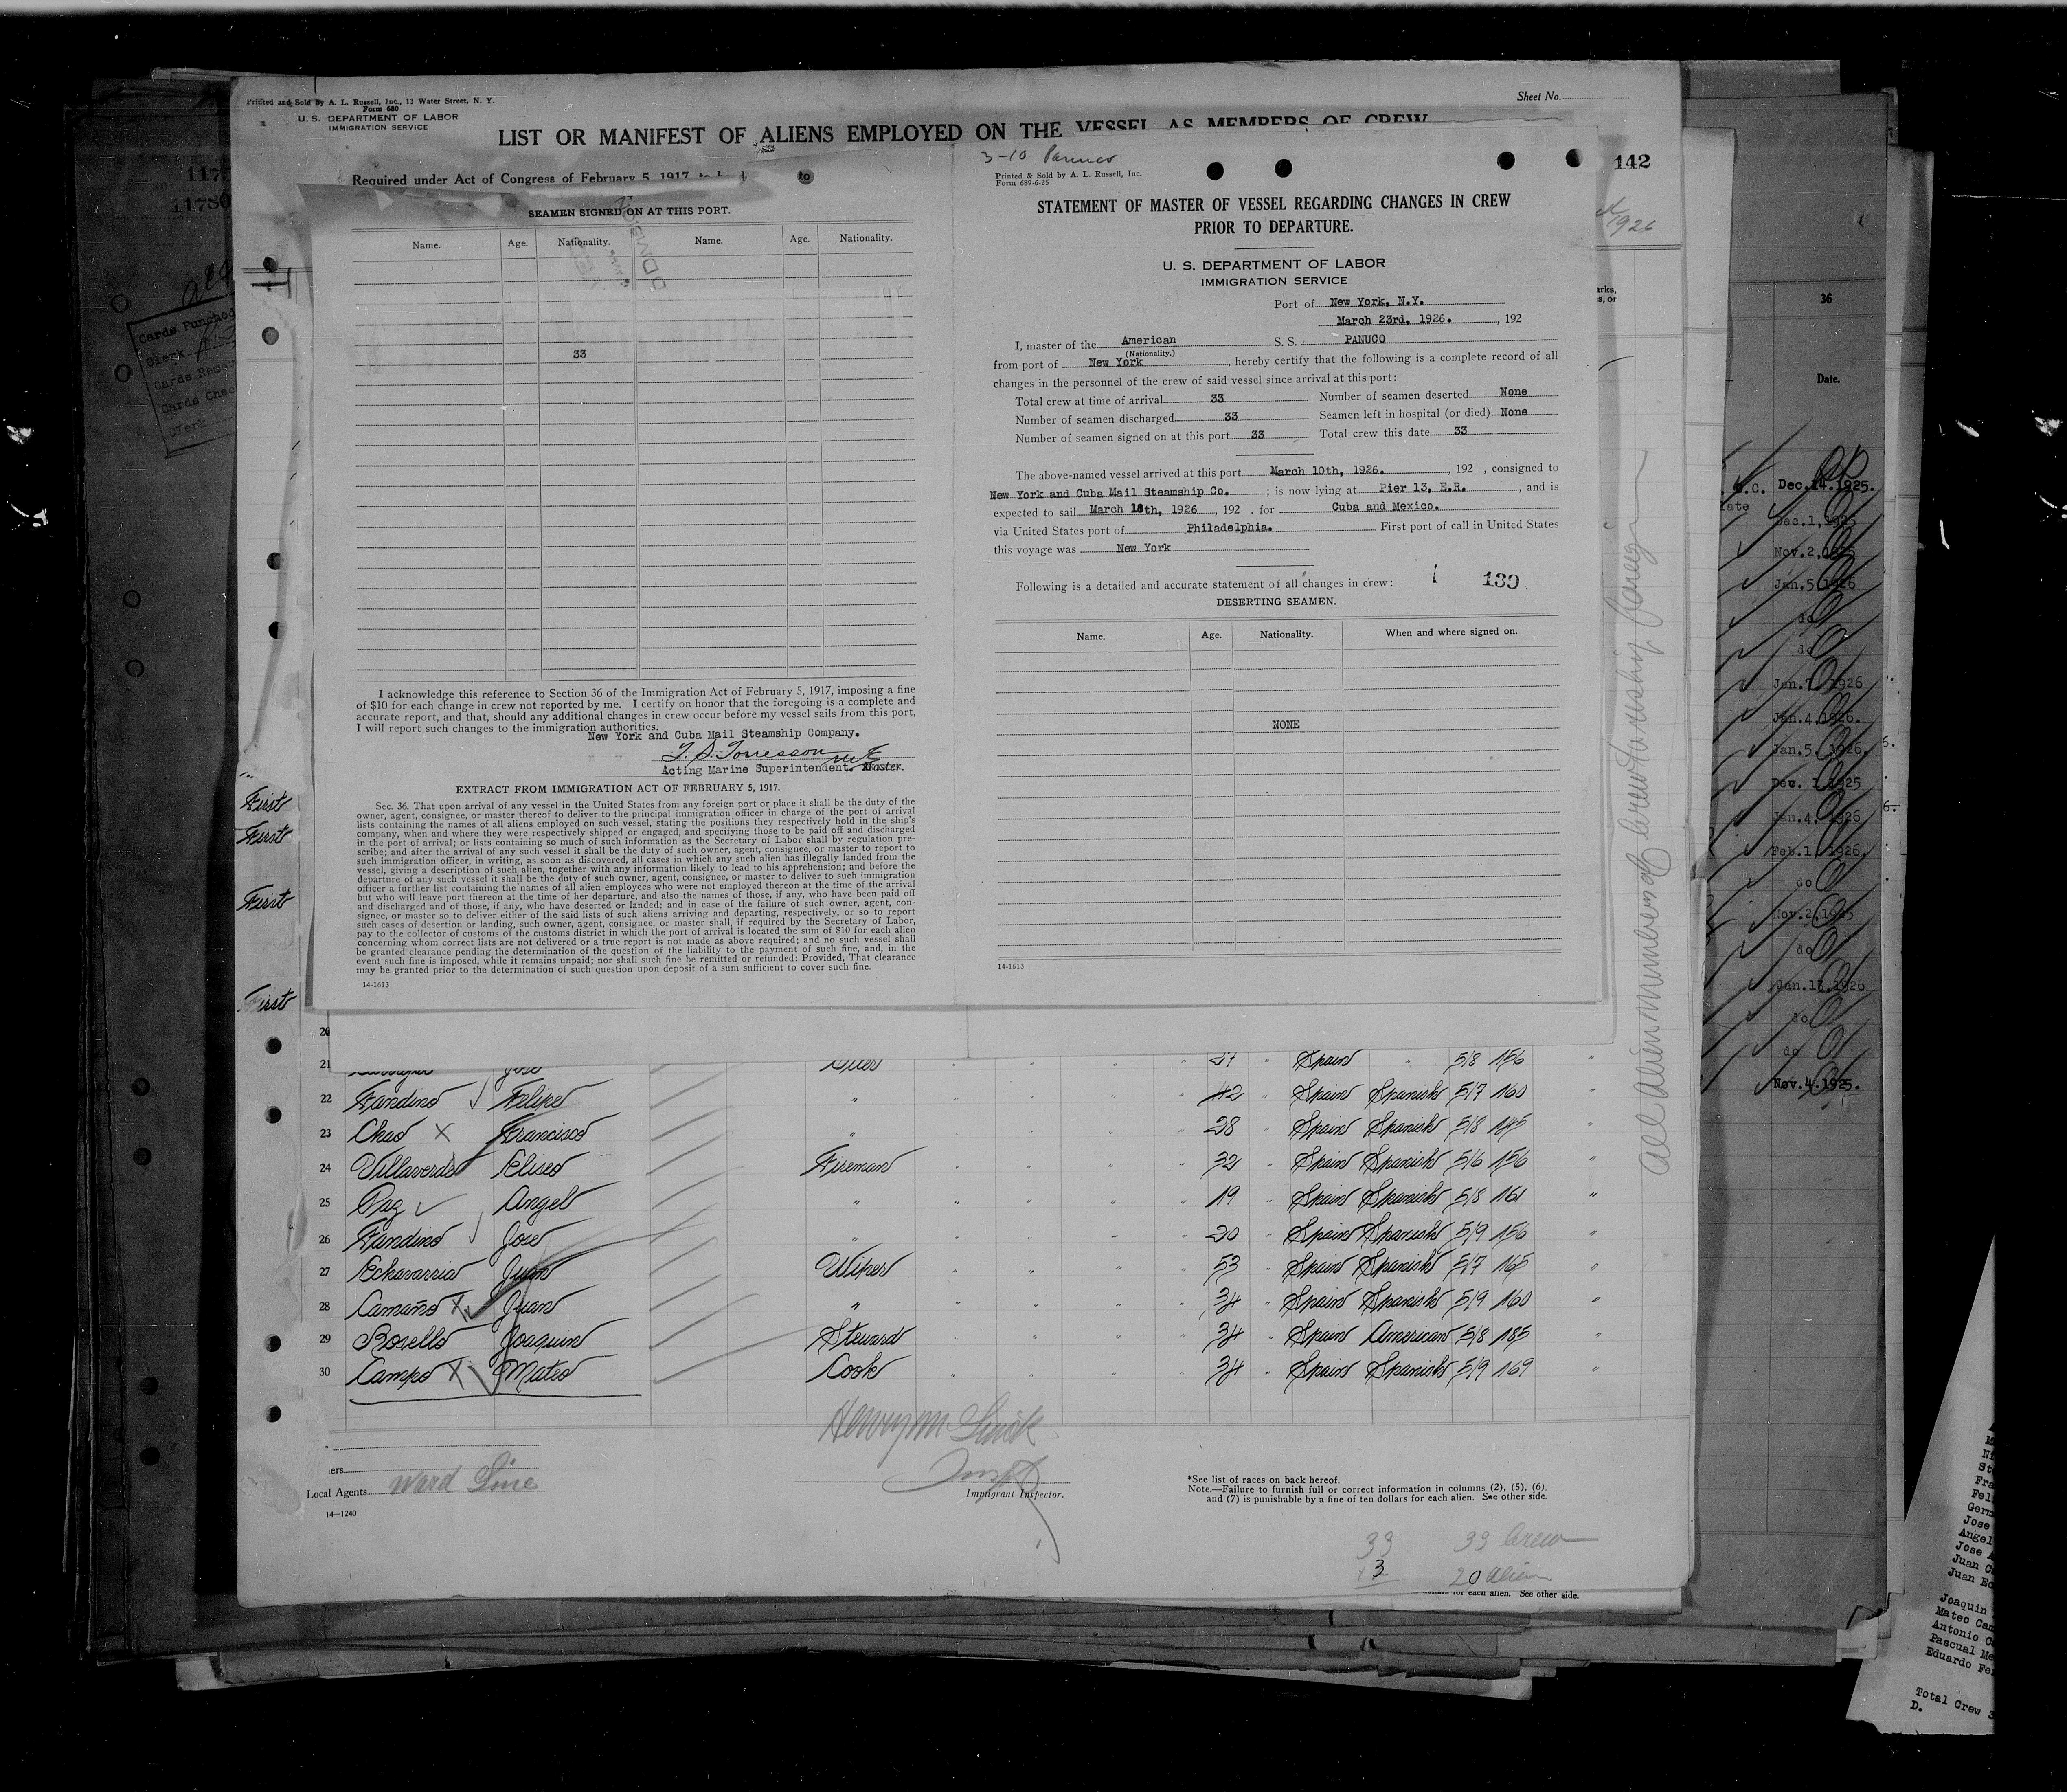 Printed and Sold By A. L. Russell, Inc., 13 Water Street, N. Y.
Form 680
U. S. DEPARTMENT OF LABOR
IMMIGRATION SERVICE
Sheet No.
LIST OR MANIFEST OF ALIENS EMPLOYED ON THE VESSEL AS MEMBERS OF CREW
Required under Act of Congress of February 5, 1917, to
142
1926
SEAMEN SIGNED ON AT THIS PORT.
Name. Age. Nationality. Name. Age. Nationality.
33
I acknowledge this reference to Section 36 of the Immigration Act of February 5, 1917, imposing a fine
of $10 for each change in crew not reported by me. I certify on honor that the foregoing is a complete and
accurate report, and that, should any additional changes in crew occur before my vessel sails from this port,
I will report such changes to the immigration authorities.
New York and Cuba Mail Steamship Company.
Acting Marine Superintendent. Master.
EXTRACT FROM IMMIGRATION ACT OF FEBRUARY 5, 1917.
Sec. 36. That upon arrival of any vessel in the United States from any foreign port or place it shall be the duty of the
owner, agent, consignee, or master thereof to deliver to the principal immigration officer in charge of the port of arrival
lists containing the names of all aliens employed on such vessel, stating the positions they respectively hold in the ship's
company, when and where they were respectively shipped or engaged, and specifying those to be paid off and discharged
in the port of arrival; or lists containing so much of such information as the Secretary of Labor shall by regulation pre-
scribe; and after the arrival of any such vessel it shall be the duty of such owner, agent, consignee, or master to report to
such immigration officer, in writing, as soon as discovered, all cases in which any such alien has illegally landed from the
vessel, giving a description of such alien, together with any information likely to lead to his apprehension; and before the
departure of any such vessel it shall be the duty of such owner, agent, consignee, or master to deliver to such immigration
officer a further list containing the names of all alien employees who were not employed thereon at the time of the arrival
but who will leave port thereon at the time of her departure, and also the names of those, if any, who have been paid off
and discharged and of those, if any, who have deserted or landed; and in case of the failure of such owner, agent, con-
signee, or master so to deliver either of the said lists of such aliens arriving and departing, respectively, or so to report
such cases of desertion or landing, such owner, agent, consignee, or master shall, if required by the Secretary of Labor,
pay to the collector of customs of the customs district in which the port of arrival is located the sum of $10 for each alien
concerning whom correct lists are not delivered or a true report is not made as above required; and no such vessel shall
be granted clearance pending the determination of the question of the liability to the payment of such fine, and, in the
event such fine is imposed, while it remains unpaid; nor shall such fine be remitted or refunded: Provided, That clearance
may be granted prior to the determination of such question upon deposit of a sum sufficient to cover such fine.
14-1613
3-10 Panuco
Printed & Sold by A. L. Russell, Inc.
Form 689-6-25
STATEMENT OF MASTER OF VESSEL REGARDING CHANGES IN CREW
PRIOR TO DEPARTURE.
U. S. DEPARTMENT OF LABOR
IMMIGRATION SERVICE
Port of New York, N.Y.
March 23rd, 1926. , 192
I, master of the American S. S. PANUCO
(Nationality.)
from port of New York , hereby certify that the following is a complete record of all
changes in the personnel of the crew of said vessel since arrival at this port:
Total crew at time of arrival 33 Number of seamen deserted None
Number of seamen discharged 33 Seamen left in hospital (or died) None
Number of seamen signed on at this port 33 Total crew this date 33
The above-named vessel arrived at this port March 10th, 1926. , 192 , consigned to
New York and Cuba Mail Steamship Co. ; is now lying at Pier 13, E.R. , and is
expected to sail March 18th, 1926 , 192 . for Cuba and Mexico.
via United States port of Philadelphia. First port of call in United States
this voyage was New York
Following is a detailed and accurate statement of all changes in crew: 139
DESERTING SEAMEN.
Name. Age. Nationality. When and where signed on.
NONE
14-1613
First
First
First
First
20
21 Oiler 27 Spain 5/8 156
22 Fandino Filipe " 42 " Spain Spanish 5/7 160 "
23 Chao X Francisco " 28 " Spain Spanish 5/8 145 "
24 Villaverde Eliseo Fireman 32 " Spain Spanish 5/6 156 "
25 Paz Angel " 19 " Spain Spanish 5/8 161 "
26 Fandino Jose " 20 " Spain Spanish 5/9 156 "
27 Echavarria Juan Wiper 53 " Spain Spanish 5/7 165 "
28 Camaño X Juan " 34 " Spain Spanish 5/9 160 "
29 Rosello Joaquin Steward 34 " Spain American 5/8 185 "
30 Campo X Mateo Cook 34 " Spain Spanish 5/9 169 "
Local Agents Ward Line
Immigrant Inspector.
14-1240
*See list of races on back hereof.
Note.—Failure to furnish full or correct information in columns (2), (5), (6),
and (7) is punishable by a fine of ten dollars for each alien. See other side.
33 33 Crew
3 20 alien
for each alien. See other side.
All alien members of crew
36
Date.
Dec.14.1925.
Dec.1,1925
Nov.2,1925
Jan.5,1926
do
do
Jan.7,1926
Jan.4,1926.
Jan.5.1926.
Dec. 1,1925
Jan.4,1926
Feb.1,1926.
do
Nov.2,1925
do
Jan.13,1926
do
do
Nov.4.1925.
11780
Cards Punched
Clerk
Cards
Cards
Clerk
Jose
Angel
Jose
Juan
Juan
Joaquin
Mateo
Antonio
Pascual
Eduardo
Total Crew
D.